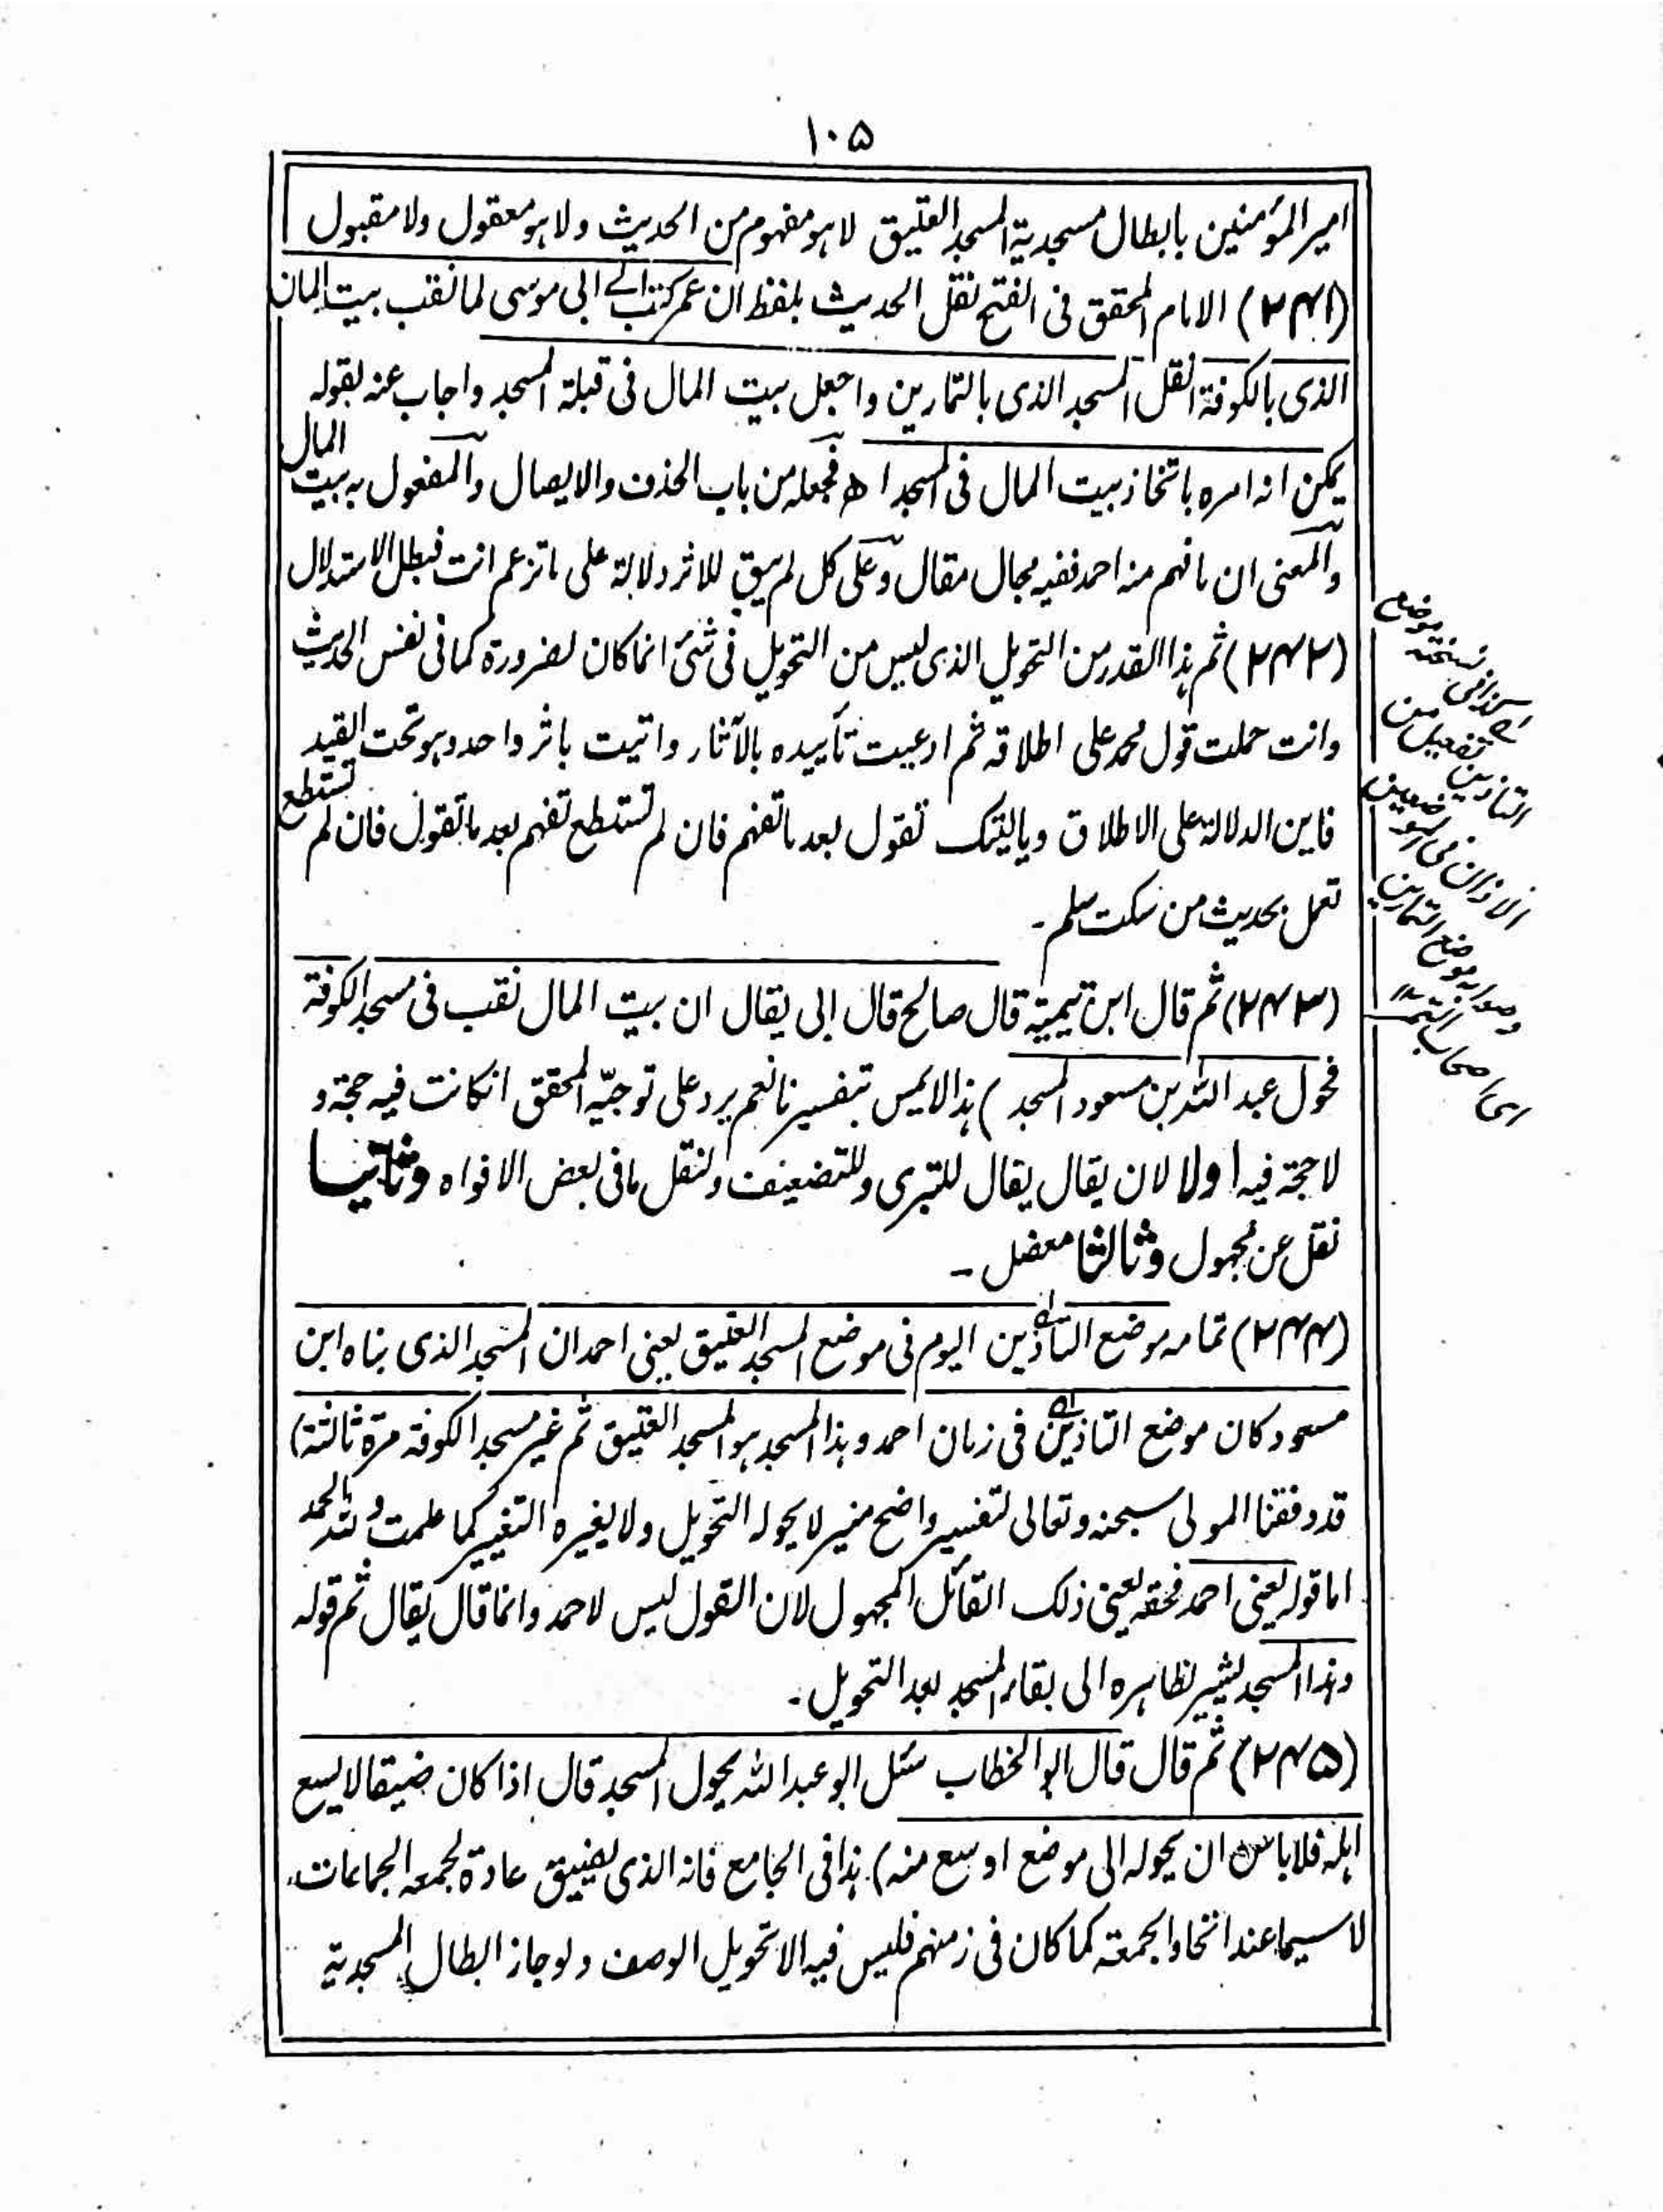 ١٠٥
امير المؤمنين بابطال مسجدية المسجد العتيق لا هو مفهوم من الحديث ولا هو معقول ولا مقبول
(٢٤١) الامام المحقق فى الفتح نقل الحديث بلفظ ان عمر كتب الى ابى موسى لما نقب بيت المال
الذى بالكوفة انقل المسجد الذى بالتمارين واجعل بيت المال فى قبلة المسجد واجاب عنه بقوله
يمكن انه امره باتخاذ بيت المال فى المسجد اھ فجعله من باب الحذف والايصال والمفعول به بيت المال
والمعنى ان ما فهم منه احمد ففيه مجال مقال وعلى كل لم يبق للاثر دلالة على ما تزعم انت فبطل الاستدلال
(٢٤٢) ثم هذا القدر من التحويل الذى ليس من التحويل فى شئ انما كان لضرورة كما فى نفس الحديث
وانت حملت قول محمد على اطلاقه ثم ادعيت تأييده بالآثار واتيت باثر واحد وهو تحت القيد
فاين الدلالة على الاطلاق وياليتك تقول بعد ما تفهم فان لم تستطع تفهم بعد ما تقول فان لم تستطع
تعمل بحديث من سكت سلم ۔
(٢٤٣) ثم قال ابن تيمية قال صالح قال ابى يقال ان بيت المال نقب فى مسجد الكوفة
فحول عبد الله بن مسعود المسجد) هذا لا يمس بتفسيرنا نعم يرد على توجيه المحقق انكانت فيه حجة و
لا حجة فيه اولا لان يقال يقال للتبرى وللتضعيف ولنقل ما فى بعض الافواه وثانيا
نقل عن مجهول وثالثا معضل ۔
(٢٤٤) تمامه موضع التاذين اليوم فى موضع المسجد العتيق يعنى احمد ان المسجد الذى بناه ابن
مسعود كان موضع التاذين فى زمان احمد وهذا المسجد هو المسجد العتيق ثم غير مسجد الكوفة مرة ثالثة)
قد وفقنا المولى سبحنه وتعالى لتفسير واضح منير لا يحوله التحويل ولا يغيره التغيير كما علمت ولله الحمد
اما قوله يعنى احمد فحقه يعنى ذلك القائل المجهول لان القول ليس لاحمد وانما قال يقال ثم قوله
وهذا المسجد يشير بظاهره الى بقاء المسجد بعد التحويل ۔
(٢٤٥) ثم قال قال ابو الخطاب سئل ابو عبد الله يحول المسجد قال اذا كان ضيقا لا يسع
اهله فلا باس ان يحوله الى موضع اوسع منه) هذا فى الجامع فانه الذى يضيق عادة لجمعه الجماعات
لا سيما عند اتحاد الجمعة كما كان فى زمنهم فليس فيه الا تحويل الوصف ولو جاز ابطال المسجدية
كذا فى نسخته موضع
التاذين تفعيل من
الاذان فى الموضعين
وصوابه موضع التمارين
اى اصحاب التمر ١٢